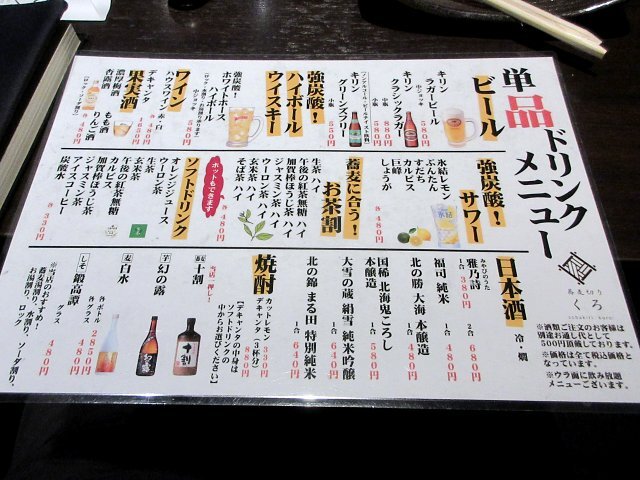 単品ドリンクメニュー
蕎麦切り
くろ
sobakiri kuro
※酒類ご注文のお客様は
別途お通し代として
500円頂戴しております。
※価格は全て税込価格と
なっています。
※ウラ面に飲み放題
メニューございます。
ビール
キリン
ラガービール
中ジョッキ
580円
キリン
クラシックラガー
中瓶
880円
小瓶
580円
キリン
グリーンズフリー
小瓶
550円
強炭酸!
ハイボール
ウイスキー
強炭酸!
ホワイトホース
ハイボール
中ジョッキ
580円
ワイン
ハウスワイン 赤・白
各480円
デキャンタ
果実酒
濃厚梅酒
杏露酒
もも酒
りんご酒
各480円
強炭酸!
サワー
氷結レモン
ぶんたん
すだち
カルピス
巨峰
しょうが
各480円
蕎麦に合う!
お茶割
生茶 ハイ
午後の紅茶無糖 ハイ
加賀棒ほうじ茶 ハイ
ジャスミン茶 ハイ
ウーロン茶 ハイ
玄米茶 ハイ
そば茶 ハイ
各480円
ホットもできます
ソフトドリンク
オレンジジュース
ウーロン茶
生茶
玄米茶
カルピス
午後の紅茶無糖
加賀棒ほうじ茶
ジャスミン茶
アイスコーヒー
炭酸水
各330円
日本酒
冷・燗
みやびのうた
雅乃詩
1合 380円
2合 680円
福司 純米
1合 680円
北の勝 大海 本醸造
1合 480円
国稀 北海鬼ころし
本醸造
1合 580円
大雪の蔵 絹雪 純米吟醸
1合 640円
北の錦 まる田 特別純米
1合 640円
焼酎
カットレモン 330円
デキャンタ(3杯分)
880円
(デキャンタの中身は
ソフトドリンクの
中からお選びください)
当店一押し!
蕎麦 十割
芋 幻の露
麦 白水
しそ 鍛高譚
各ボトル 2850円
各グラス 480円
※当店のおすすめ!
蕎麦湯割り、水割り、
お湯割り、ロック、ソーダ割り、